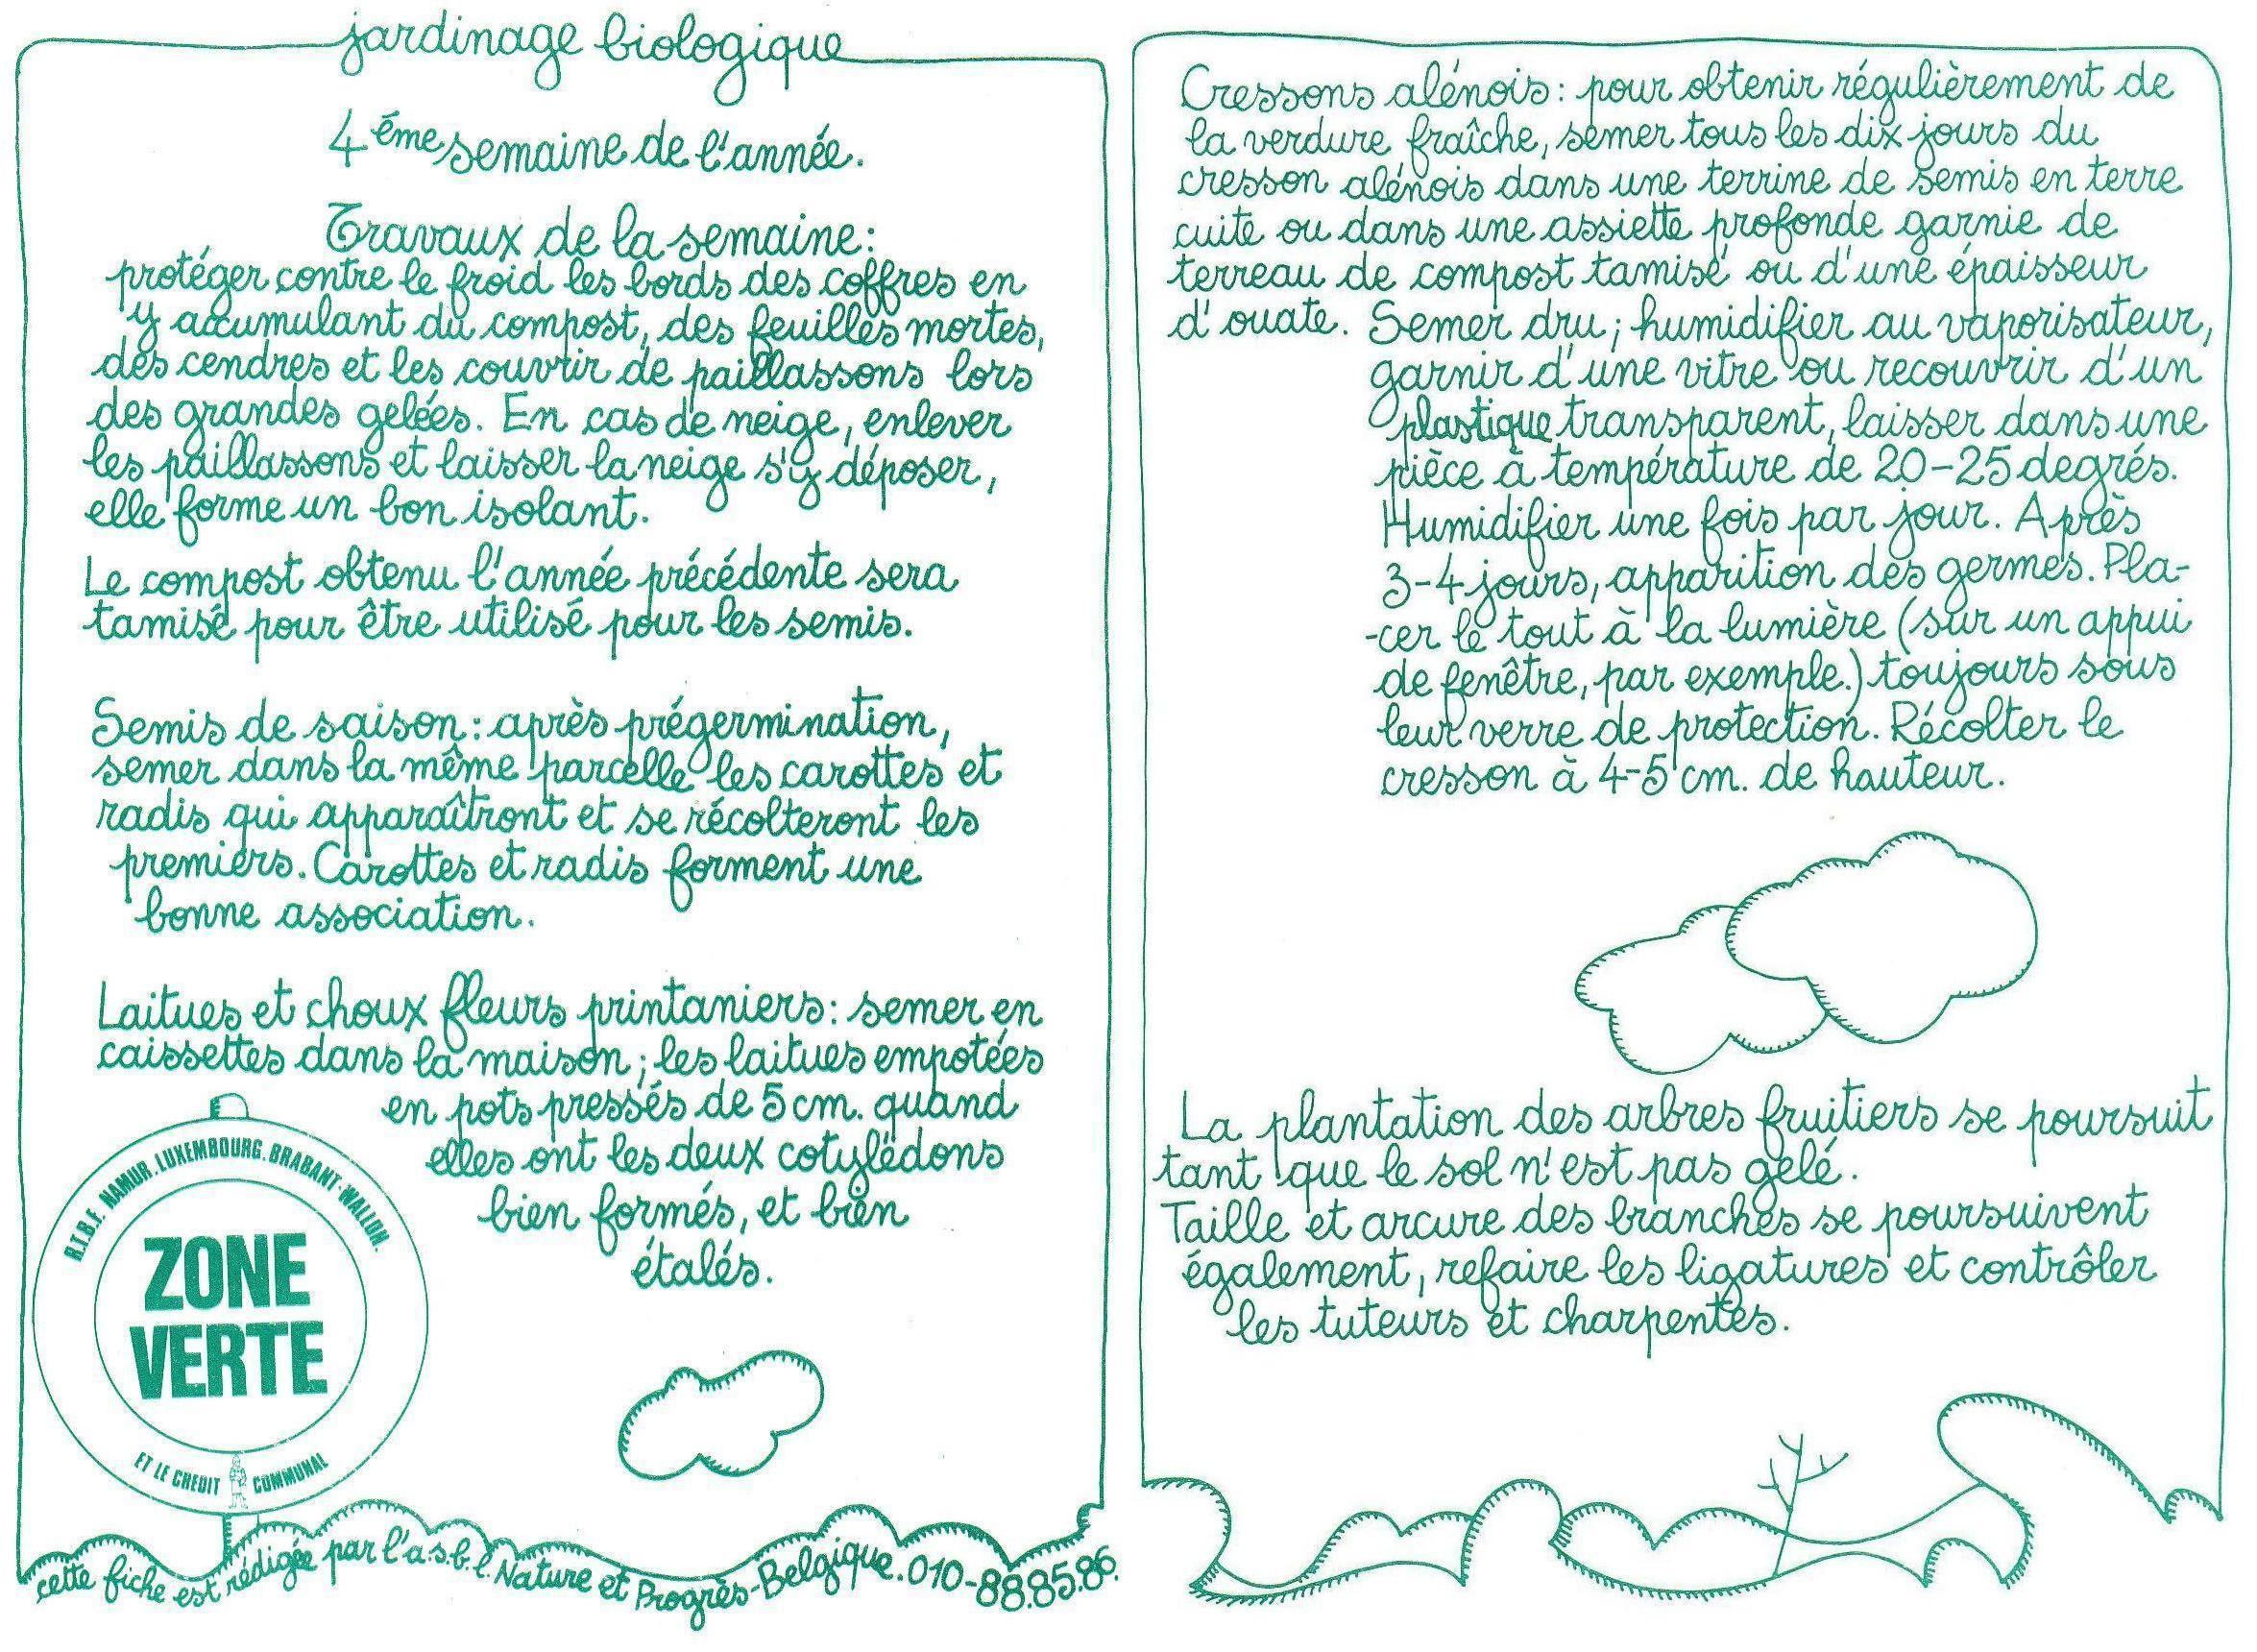 jardinage biologique
4ème semaine de l'année.
Travaux de la semaine:
protéger contre le froid les bords des coffres en
y accumulant du compost, des feuilles mortes,
des cendres et les couvrir de paillassons lors
des grandes gelées. En cas de neige, enlever
les paillassons et laisser la neige s'y déposer,
elle forme un bon isolant.
Le compost obtenu l'année précédente sera
tamisé pour être utilisé pour les semis.
Semis de saison: après prégermination,
semer dans la même parcelle les carottes et
radis qui apparaîtront et se récolteront les
premiers. Carottes et radis forment une
bonne association.
Laitues et choux fleurs printaniers: semer en
caissettes dans la maison; les laitues empotées
en pots pressés de 5 cm. quand
elles ont les deux cotylédons
bien formés, et bien
étalés.
R.T.B.F. NAMUR. LUXEMBOURG. BRABANT-WALLON.
ZONE
VERTE
ET LE CREDIT COMMUNAL
cette fiche est rédigée par l'a.s.b.l. Nature et Progrès-Belgique. 010-88.85.86.
Cressons alénois: pour obtenir régulièrement de
la verdure fraîche, semer tous les dix jours du
cresson alénois dans une terrine de semis en terre
cuite ou dans une assiette profonde garnie de
terreau de compost tamisé ou d'une épaisseur
d'ouate. Semer dru; humidifier au vaporisateur,
garnir d'une vitre ou recouvrir d'un
plastique transparent, laisser dans une
pièce à température de 20-25 degrés.
Humidifier une fois par jour. Après
3-4 jours, apparition des germes. Pla-
-cer le tout à la lumière (sur un appui
de fenêtre, par exemple.) toujours sous
leur verre de protection. Récolter le
cresson à 4-5 cm. de hauteur.
La plantation des arbres fruitiers se poursuit
tant que le sol n'est pas gelé.
Taille et arcure des branches se poursuivent
également, refaire les ligatures et contrôler
les tuteurs et charpentes.